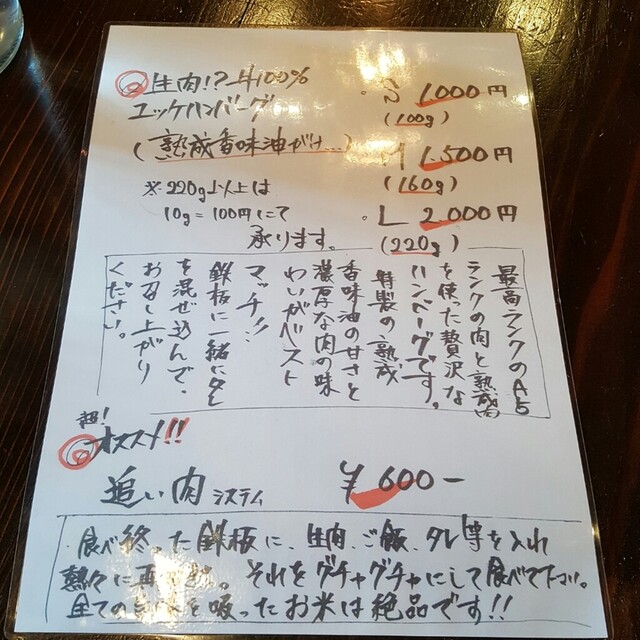 生肉!?牛100%
ユッケハンバーグ
(熟成香味油がけ...)
※220g以上は
10g=100円にて
承ります。
・S 1.000円
(100g)
M 1.500円
(160g)
・L 2.000円
(220g)
最高ランクのA5
ランクの肉と熟成肉
を使った贅沢な
ハンバーグです。
特製の熟成
香味油の甘さと
濃厚な肉の味
わいがベスト
マッチ!!
鉄板に一緒にタレ
を混ぜ込んで、
お召し上がり
ください。
超!
オススメ!!
追い肉システム ¥600-
食べ終った鉄板に、生肉、ご飯、タレ等を入れ
熱々に再 。それをグチャグチャにして食べて下さい。
全ての を吸ったお米は絶品です!!